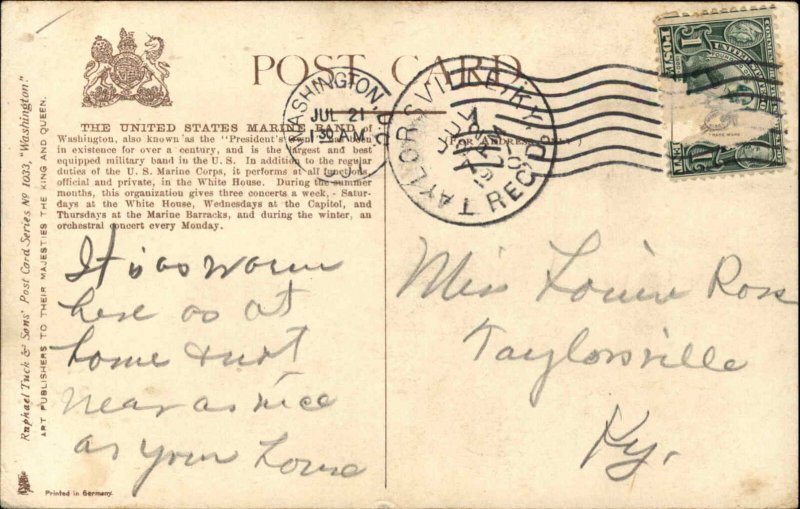 POST CARD
THE UNITED STATES MARINE BAND of
Washington, also known as the "President's Own" has been
in existence for over a century, and is the largest and best
equipped military band in the U. S. In addition to the regular
duties of the U. S. Marine Corps, it performs at all functions,
official and private, in the White House. During the summer
months, this organization gives three concerts a week, - Satur-
days at the White House, Wednesdays at the Capitol, and
Thursdays at the Marine Barracks, and during the winter, an
orchestral concert every Monday.
Raphael Tuck & Sons' Post Card Series No 1033, "Washington"
ART PUBLISHERS TO THEIR MAJESTIES THE KING AND QUEEN.
WASHINGTON, D.C.
JUL 21
1 30 AM
TAYLORSVILLE, KY.
JUL
REC'D
FOR ADDRESS ONLY
It is as warm
here as at
home & not
near as nice
as your home
Miss Louise Ross
Taylorsville
Ky.
Printed in Germany.
POST
1
TRADE MARK
1